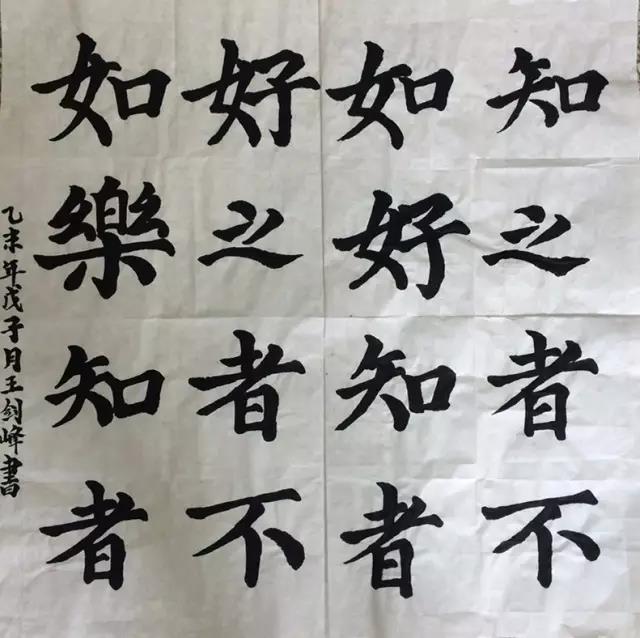 知之者不
如好知者
好之者不
如樂知者
乙未年戊子月王剑峰書